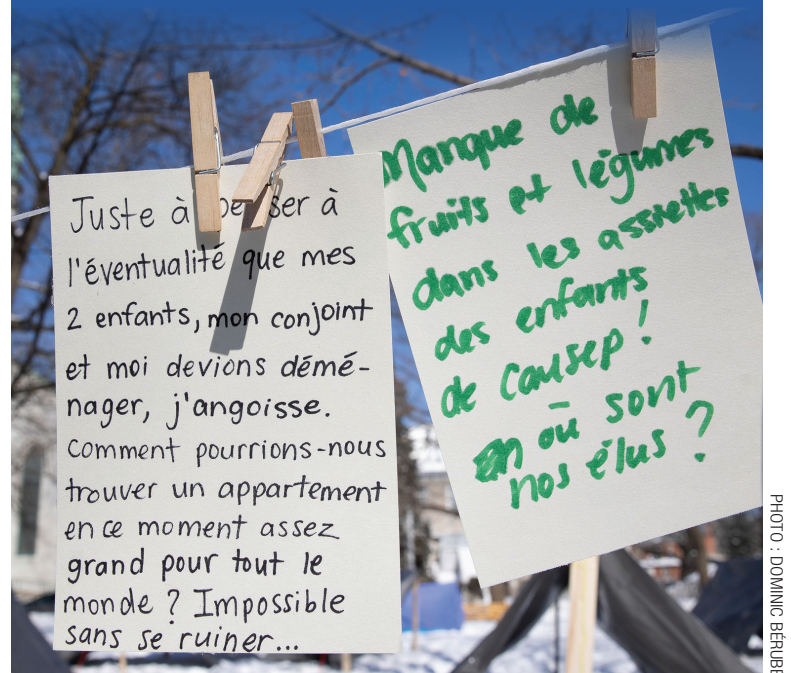 Juste à penser à
l'éventualité que mes
2 enfants, mon conjoint
et moi devions démé-
nager, j'angoisse.
Comment pourrions-nous
trouver un appartement
en ce moment assez
grand pour tout le
monde ? Impossible
sans se ruiner...
Manque de
fruits et légumes
dans les assiettes
des enfants
de causep !
où sont
nos élus ?
PHOTO : DOMINIC BÉRUBÉ